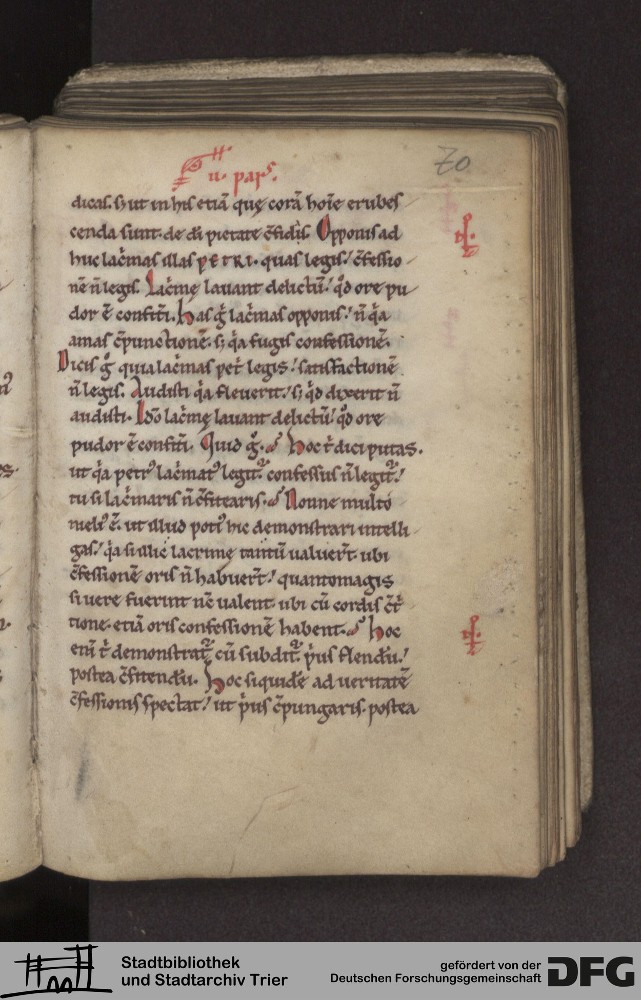 .ii. parˢ.
70
dicas. sꝫ ut in his etiā quę corā hoīe erubes
cenda sunt. de dī pietate c̄fidis. Opponis ad
huc lac̄mas illas PETRI. quas legis / c̄fessio
nē n̄ legis. Lac̄mę lauant delictū / qd̄ ore pu
dor ē confitˈi. has ḡ lac̄mas opponis / n̄ q̄a
amas c̄punctionē. sꝫ q̄a fugis confessionē.
Dicis ḡ quia lac̄mas petˈ legis / satisfactionē
n̄ legis. Audisti q̄a fleuerit / sꝫ qd̄ dixerit n̄
audisti. Idō lac̄mę lauant delictū / qd̄ ore
pudor ē confitˈi. Quid ḡ. hoc tˈ dici putas.
ut q̄a petrꝰ lac̄matꝰ legitˈ. confessus n̄ legitˈ /
tu si lac̄maris n̄ c̄fitearis. Nonne multo
meliꝰ ē. ut illud potiꝰ hic demonstrari intelli
gas / q̄a si illic lacrime tantū ualuerˈt. ubi
c̄fessionē oris n̄ habuerˈt / quantomagis
si uere fuerint nc̄ ualent. ubi cū cordis c̄tˈ
tione. etiā oris confessionē habent. hoc
eni tˈ demonstratˈ. cū subditˈ. p̄us flendū /
postea c̄fitendū. hoc siquidē ad ueritatē
c̄fessionis spectat / ut p̄us c̄pungaris. postea
Stadtbibliothek
und Stadtarchiv Trier
gefördert von der
Deutschen Forschungsgemeinschaft
DFG